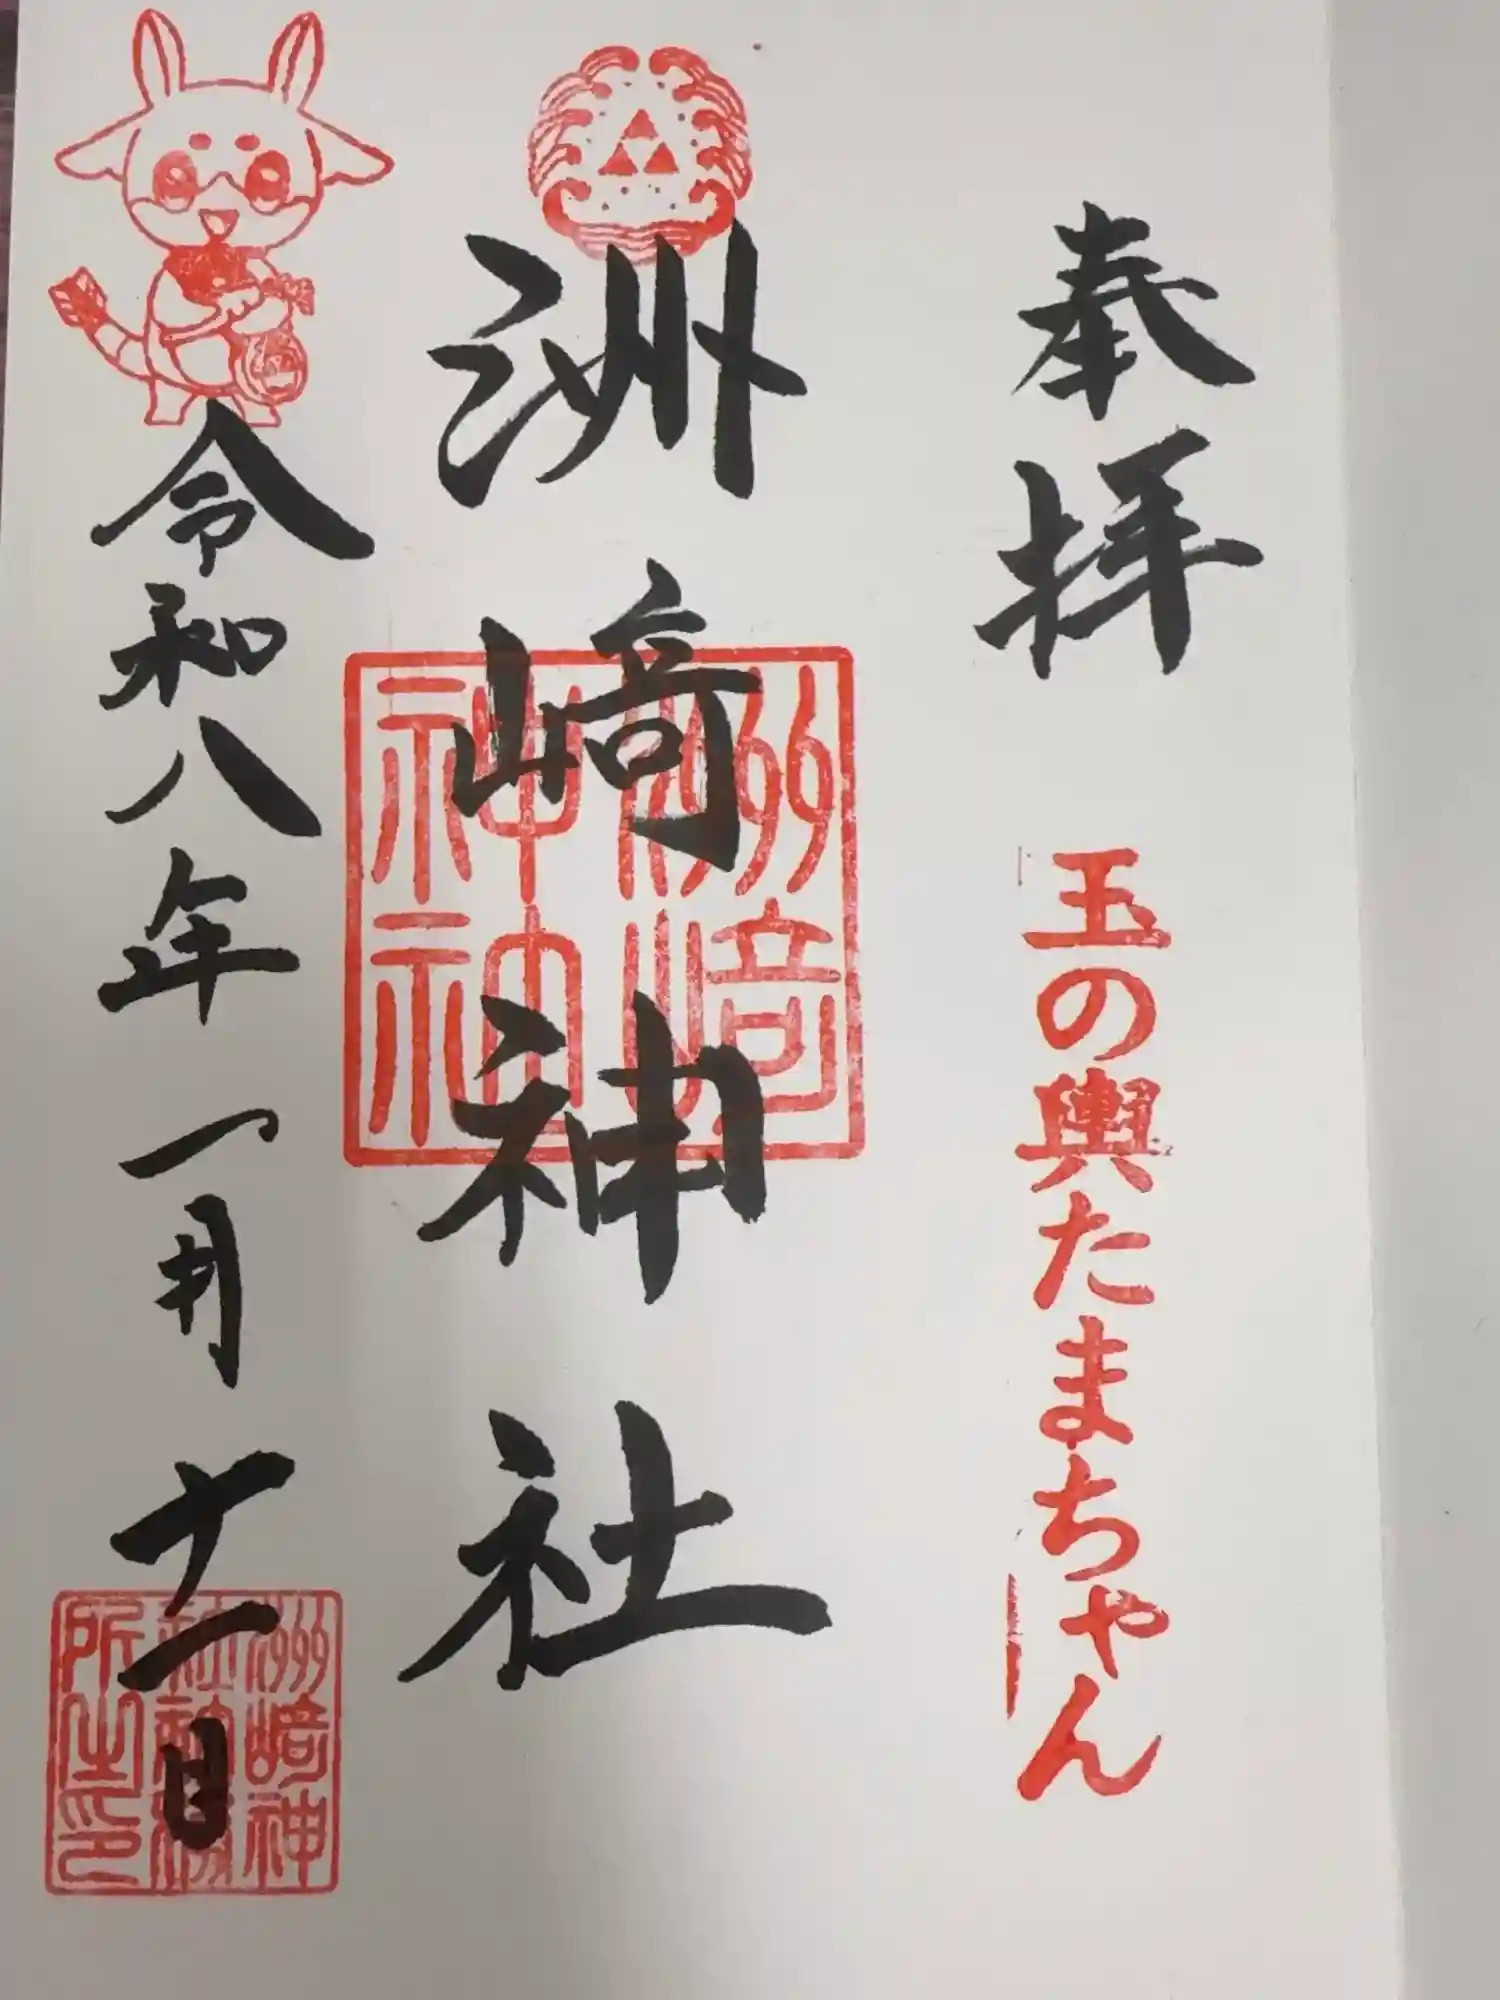 奉拝
玉の輿たまちゃん
洲﨑神社
洲﨑神社
令和八年一月十一日
洲﨑神社社務所之印